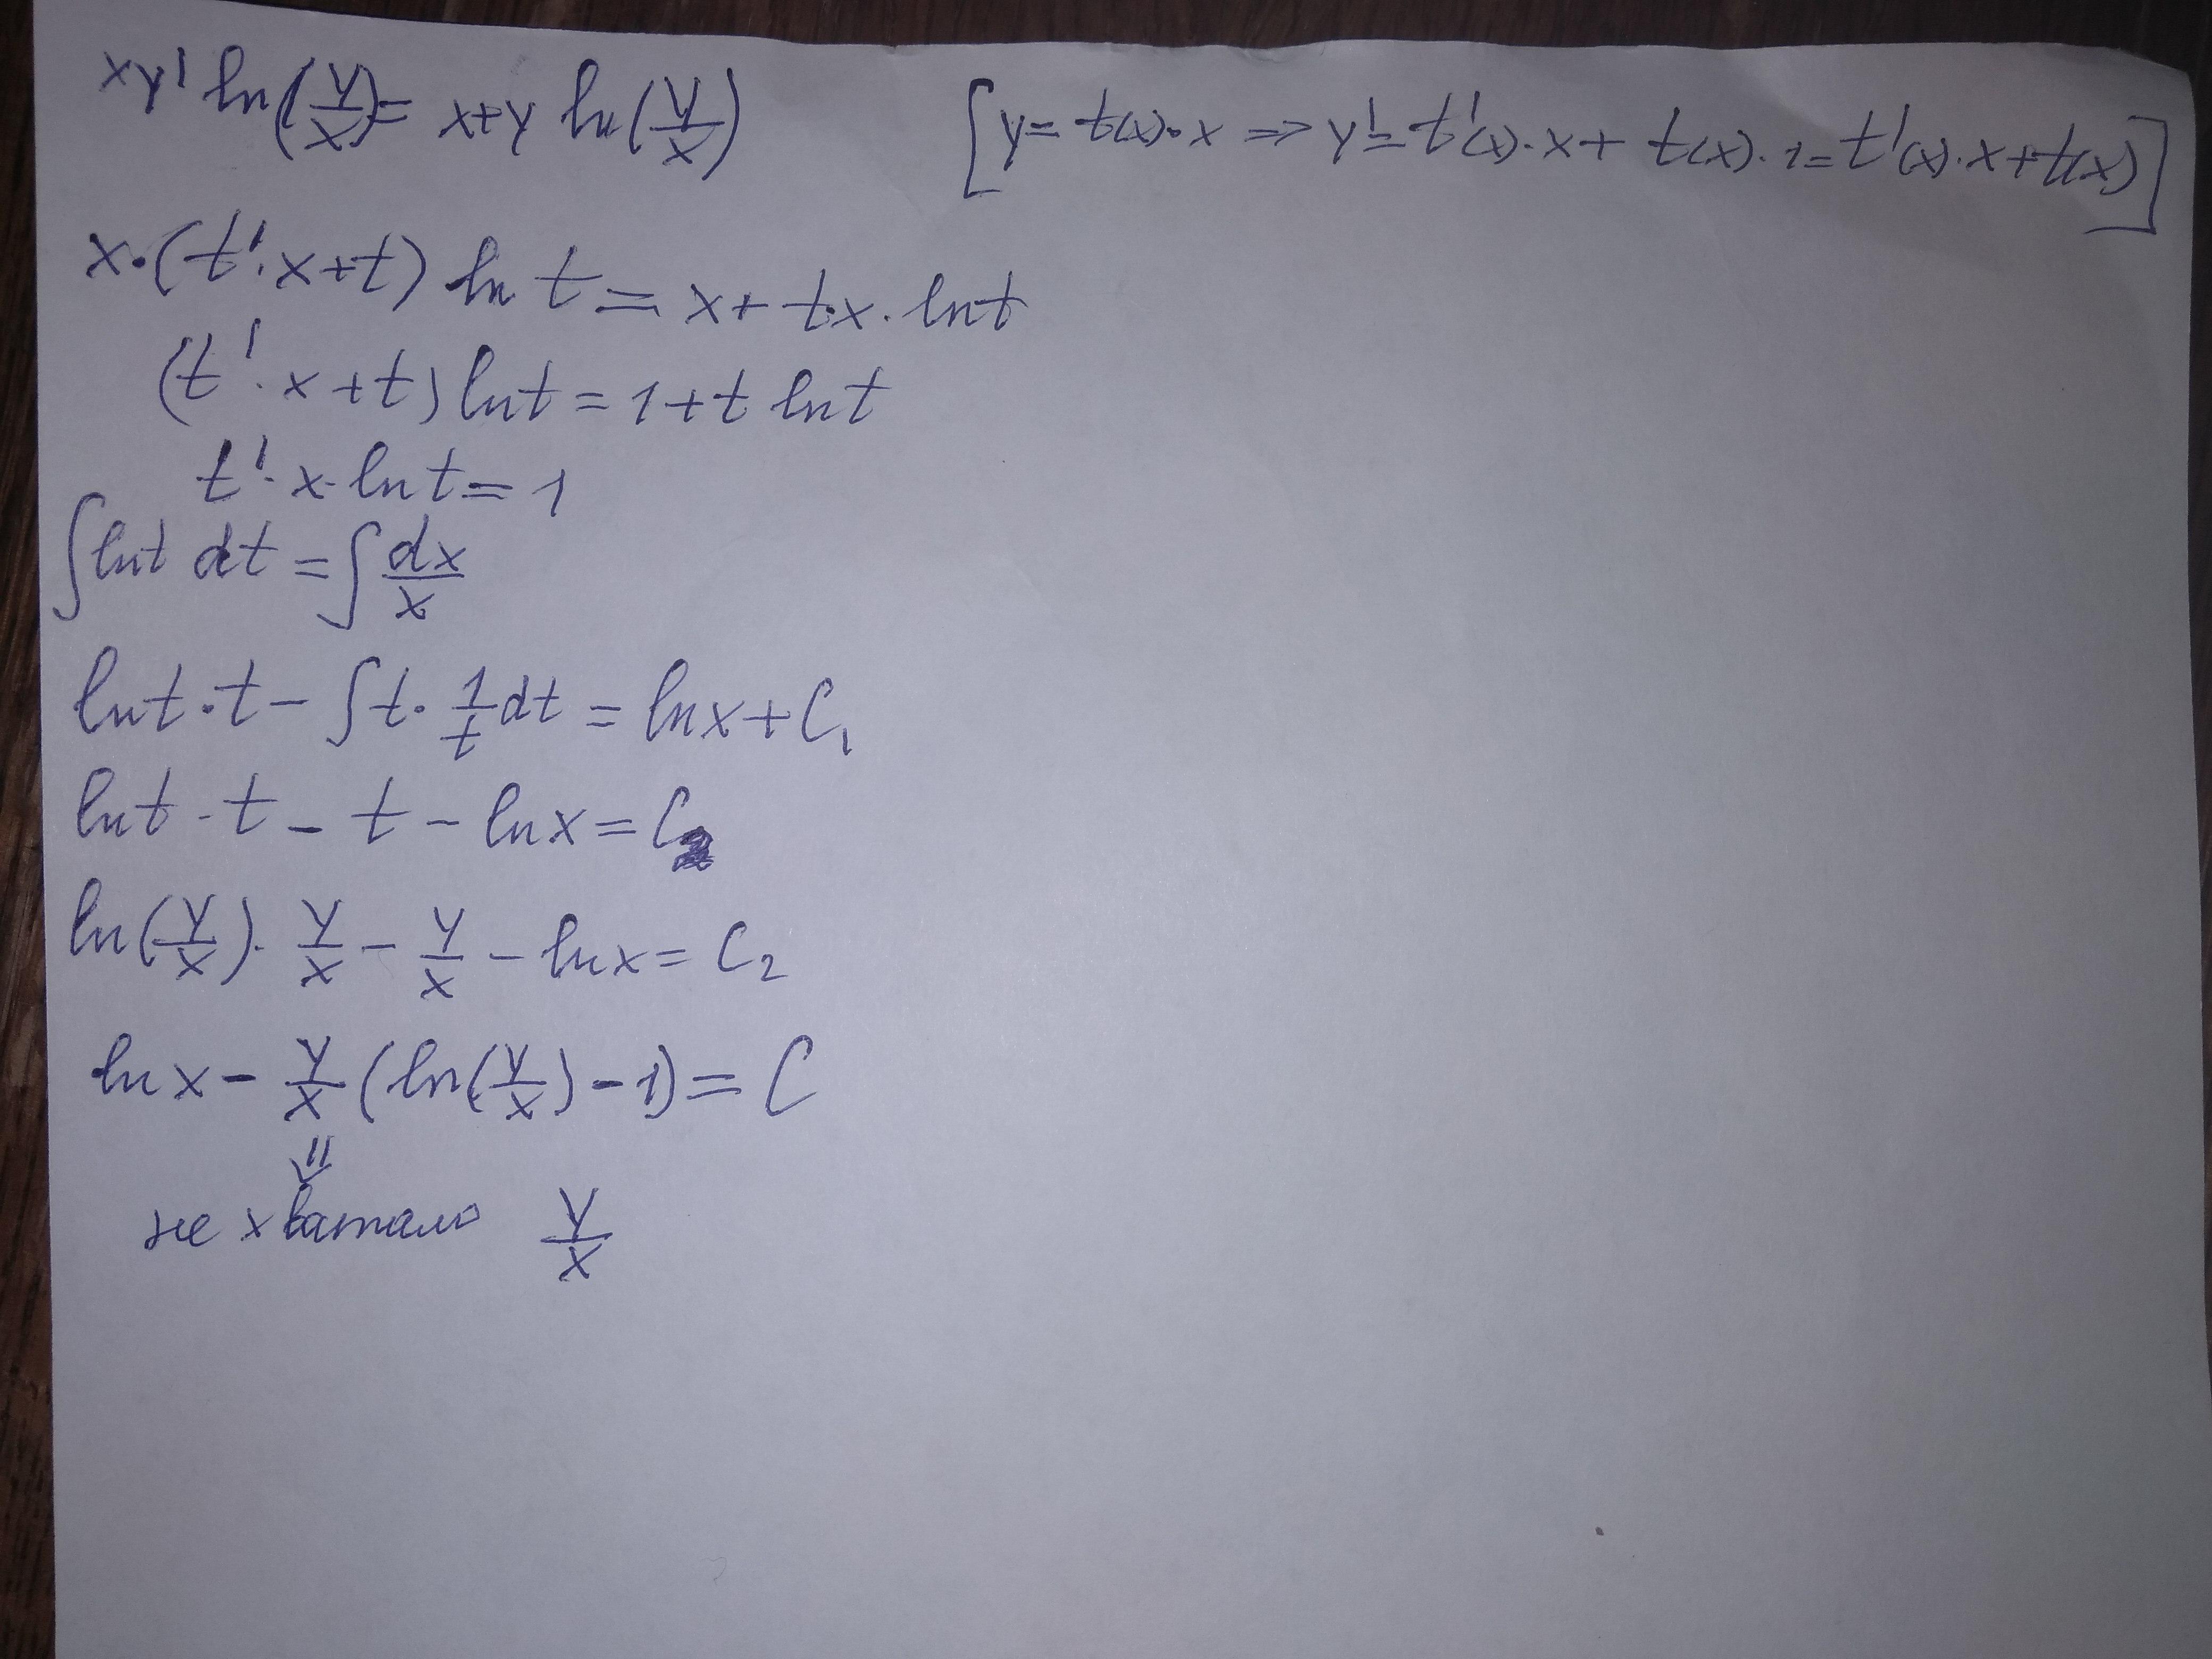 xy' ln(y/x) = x+y ln(y/x) [y = t(x)·x ⇒ y' = t'(x)·x + t(x)·1 = t'(x)·x + t(x)]
x·(t'·x+t) ln t = x + t·x·ln t
(t'·x+t) ln t = 1+t ln t
t'·x·ln t = 1
∫ln t dt = ∫dx/x
ln t·t − ∫t·1/t dt = ln x + C₁
ln t·t − t − ln x = C
ln(y/x)·y/x − y/x − ln x = C₂
ln x − y/x (ln(y/x) − 1) = C
⇓
не хватало y/x